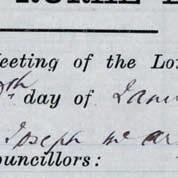 Meeting of the Lo
th day of Janu
Joseph McAr
ouncillors: